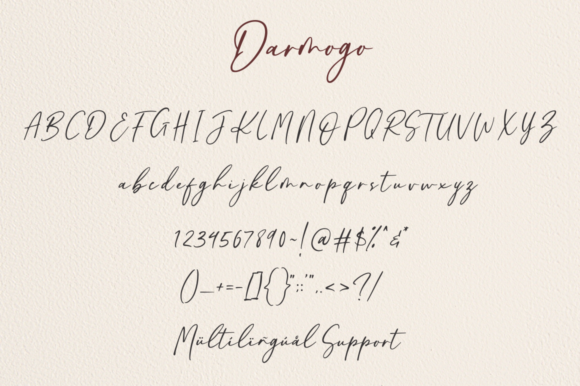 Darmogo
ABCDEFGHIJKLMNOPQRSTUVWXYZ
abcdefghijklmnopqrstuvwxyz
1234567890~!@#$%^&*
()_+=-[]{}":;'",.<>?/
Mültilïñgúãl Support